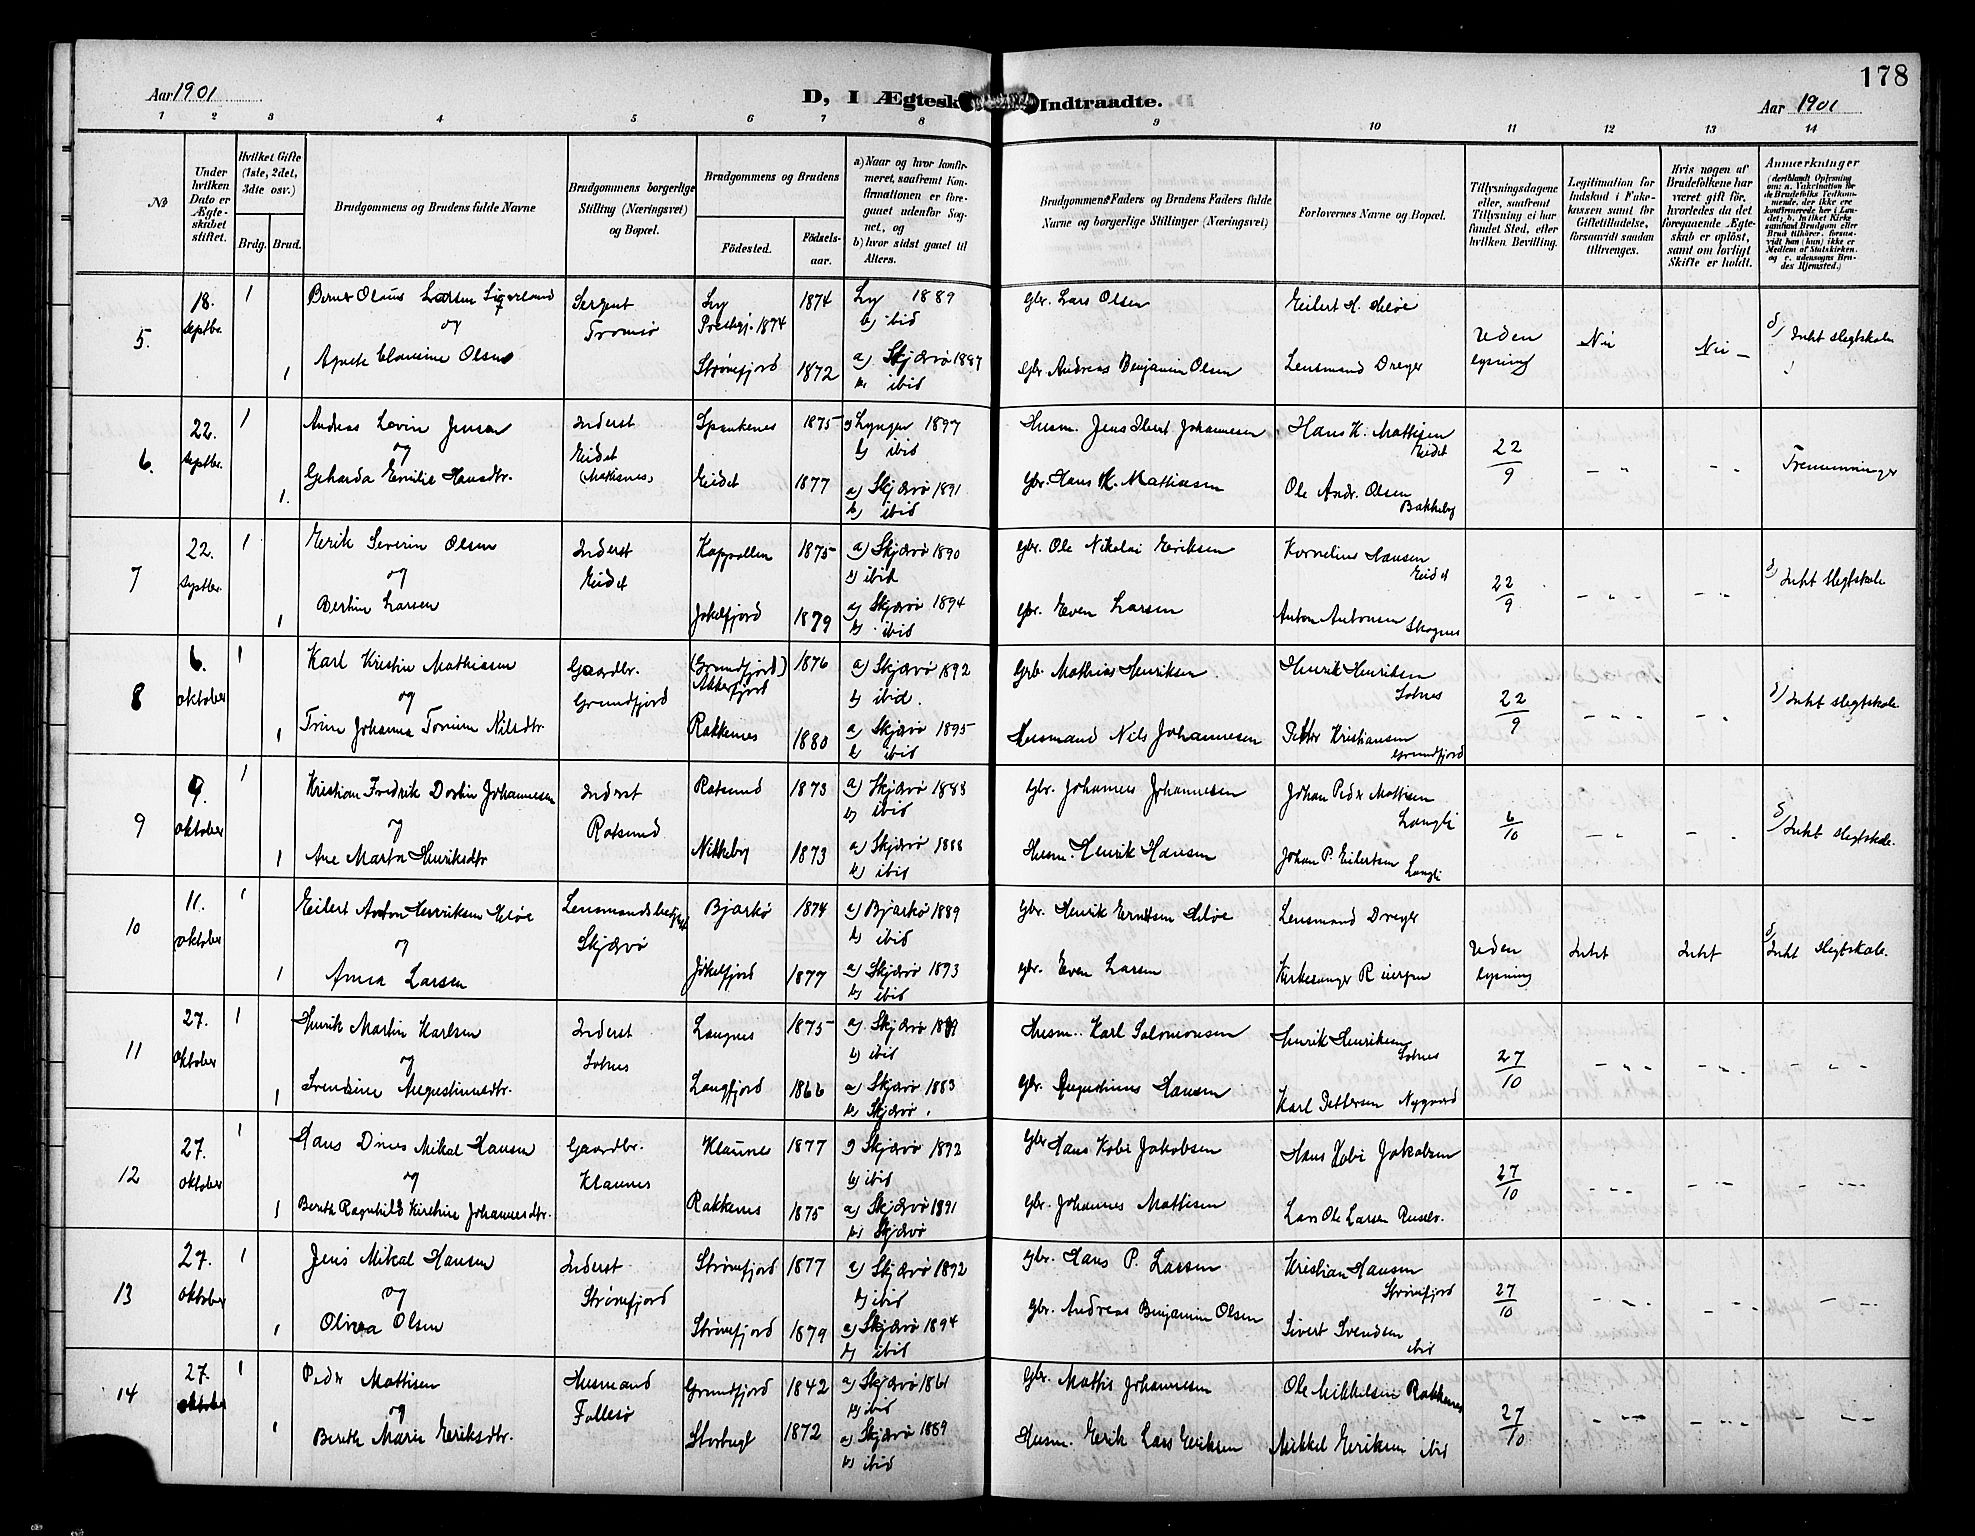 178
Aar 1901
D, I Ægtesk
Indtraadte.
Aar 1901
1 2 3 4 5 6 7 8 9 10 11 12 13 14
No
Under hvilken Dato er Ægteskabet stiftet.
Hvilket Gifte (1ste, 2det, 3die osv.)
Brdg. Brud.
Brudgommens og Brudens fulde Navne
Brudgommens borgerlige Stilling (Næringsvei) og Bopæl.
Brudgommens og Brudens
Födested. Födsels-aar.
a) Naar og hvor konfirmeret, saafremt Konfirmationen er foregaaet udenfor Sognet, og
b) hvor sidst gaaet til Alters.
Brudgommens Faders og Brudens Faders fulde Navne og borgerlige Stillinger (Næringsvei)
Forlovernes Navne og Bopæl.
Tillysningsdagene eller, saafremt Tillysning ei har fundet Sted, efter hvilken Bevilling.
Legitimation for Indskud i Enkekassen samt for Giftetilladelse, forsaavidt saadan tiltrænges.
Hvis nogen af Brudefolkene har været gift før, hvorledes da det foregaaende Ægteskab er opløst, samt om lovligt Skifte er holdt.
Anmærkninger
5. 18. Septbr. 1 Olaus Larsen
og
1 Olsen
Sergent Tromsø
Lyng Præstegj. 1874 1874
Strømfjord 1872
Lyng 1889 b) ibid
a) Skjærvø 1887 b) ibid
Gbr. Lars Olsen
Gbr. Andreas Benjamin Olsen
Eilert H. Meløe
Lensmand Dreyer
Uden lysning
Nei
Nei —
d) Intet slegtskab
6. 22. Septbr. 1 Andreas Lovin Jensen
og
1. Gerharda Emilie Hansdtr.
Inderst Eidet (Mattisnes)
Spaakenes 1875
Eidet 1877
a) Lyngen 1897 b) ibid
a) Skjærvø 1891 b) ibid
Husm. Jens Johannesen
Gbr. Hans K. Mathisen
Hans K. Mattisen Eidet
Ole Andr. Olsen Bakkeby
22/9
Tremenninger
7 22. Septbr. 1 Erik Severin Olsen
og
1 Bertine Larsen
Inderst Eidet
Koppvollen 1875
Jøkelfjord 1879
a) Skjærvø 1890 b) ibid
a) Skjærvø 1894 b) ibid
Gbr. Ole Nikolai Eriksen
Gbr. Even Larsen
Kornelius Hansen Eidet
Anton Antonsen Skognes
22/9
d) Intet slegtskab
8 6. oktober 1 Karl Kristin Mathiassen
og
1 Trine Johanna Tomine Nilsdtr.
Gaardbr. Grundfjord
(Grundfjord) Akkerfjord 1876
Rakkenes 1880
a) Skjærvø 1892 b) ibid.
a) Skjærvø 1895 b) ibid
Grb. Mathias Henriksen
Husmand Nils Johannesen
Henrik Henriksen Sotnes
Petter Kristiansen Grundfjord
22/9
d) Intet slegtskab
9 9. oktober 1 Kristian Fredrik Dortin Johannesen
og
1 Ane Marta Henriksdtr
Inderst Rotsund
Rotsund 1873
Nikkeby 1873
a) Skjærvø 1888 b) ibid
a) Skjærvø 1888 b) ibid
Gbr. Johannes Johannesen
Husm. Henrik Hansen
Johan Peder Mattisen Langli
Johan P. Eilertsen Langli
6/10
d) Intet slegtskab.
10 11. oktober 1 Eilert Anton Henriksen Meløe
og
1 Anna Larsen
Skjærvø
Bjarkø 1874
Jøkelfjord 1877
a) Bjarkø 1889 b) ibid
a) Skjærvø 1893 b) ibid
Gbr. Henrik Erntsen Meløe
Gbr. Even Larsen
Lensmand Dreyer
Kirkesanger
Uden lysning
Intet
Intet
d) Intet slegtskab.
11 27. Oktober 1 Henrik Martin Karlsen
og
1 Svendsine Augustinusdtr.
Inderst Sotnes
Langnes 1875
Langfjord 1866
a) Skjærvø b) ibid
a) Skjærvø 1883 b) Skjærvø.
Husm. Karl Salomonsen
Gbr. Augustinus Hansen
Henrik Henriksen Sotnes
Karl Pettersen Nygaard
27/10
12 27. oktober 1 Hans Dines Mikal Hansen
og
1 Berith Ragnhild Kirstine Johannesdtr.
Gaardbr. Klaunes
Klaunes 1877
Rakkenes 1875
a) Skjærvø 1892 b) ibid
a) Skjærvø 1891 b) Skjærvø
Gbr Hans Kobi Jakobsen
Gbr. Johannes Mattisen
Hans Kobi Jakobsen
Lars Ole Larsen
27/10
13 27. oktober 1 Jens Mikal Hansen
og
1 Olivea Olsen
Inderst Strømfjord
Strømfjord 1877
Strømfjord 1879
a) Skjærvø 1892 b) ibid
a) Skjærvø 1894 b) ibid
Gbr. Hans P. Lassen
Gbr. Andreas Benjamin Olsen
Kristian Hansen Strømfjord
Sivert Svendsen ibid
27/10
14 27. oktober 1 Peder Mattisen
og
1 Berith Marie Eriksdtr.
Husmand Follesø
Grundfjord 1842
Storbugt 1872
a) Skjærvø 1861 b) ibid
a) Skjærvø 1889 b) ibid
Gbr. Mattis Johannesen
Husm. Erik Lars Eriksen
Ole Mikkelsen Rakkenes
Mikkel Eriksen ibid
27/10